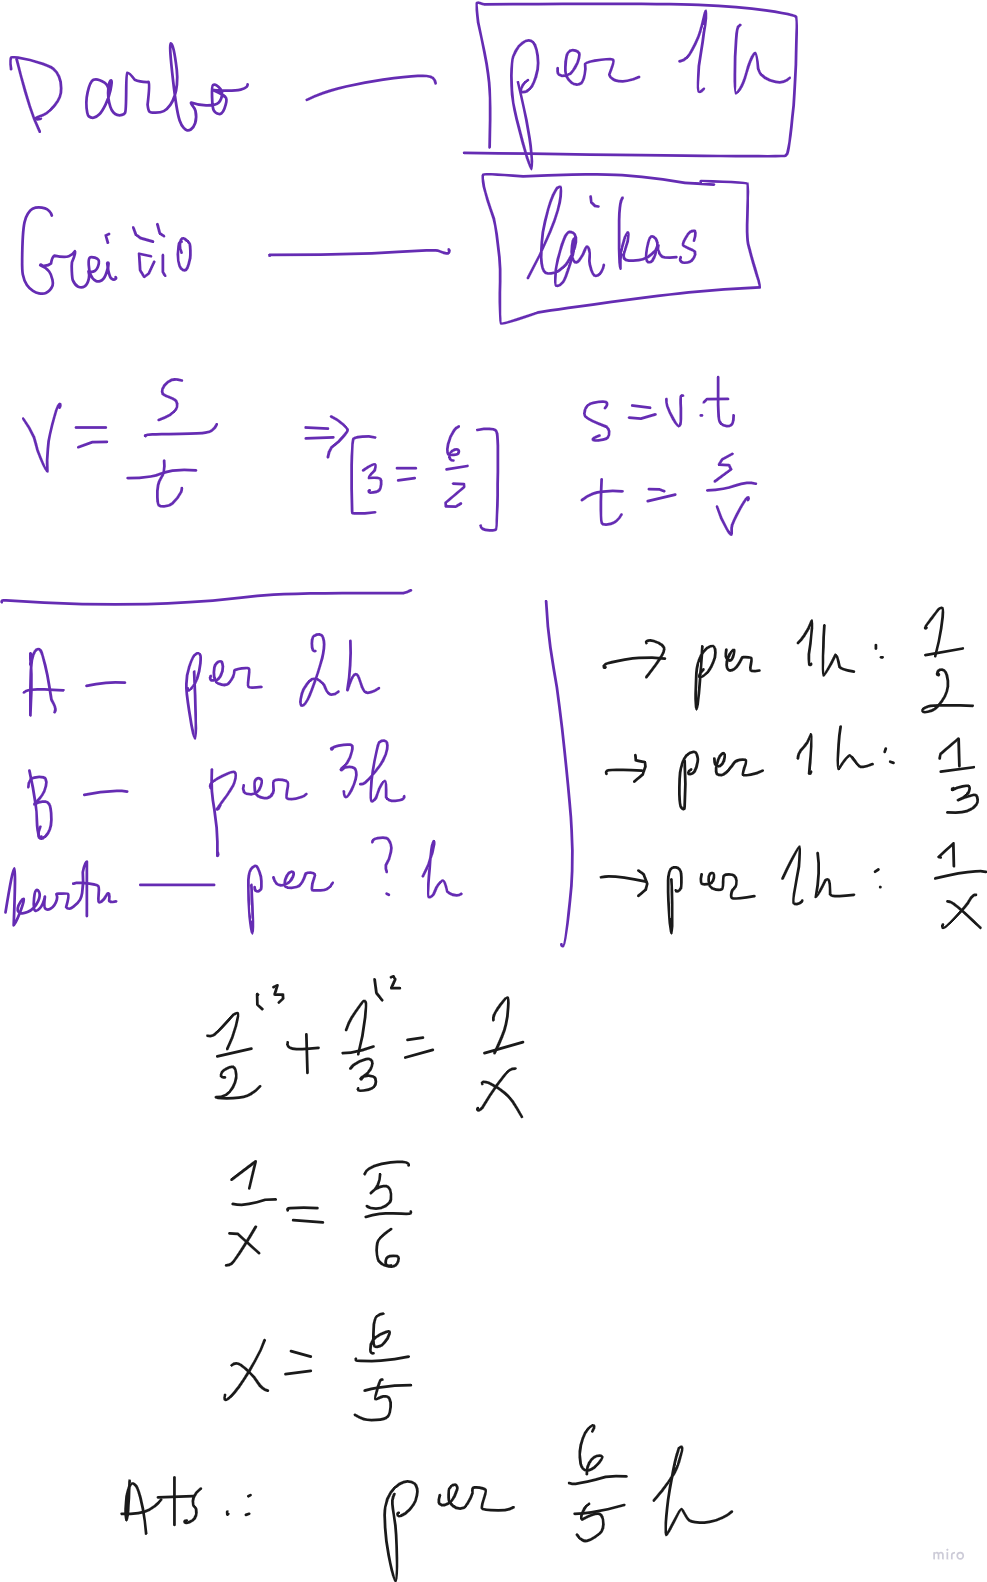 Darbo — per 1h
Greičio — laikas
V = s/t ⇒ [3 = 6/2] s = v·t
t = s/v
A — per 2h → per 1h: 1/2
B — per 3h → per 1h: 1/3
kartu — per ? h → per 1h: 1/x
1/2 ⁽³ + 1/3 ⁽² = 1/x
1/x = 5/6
x = 6/5
Ats.: per 6/5 h
miro